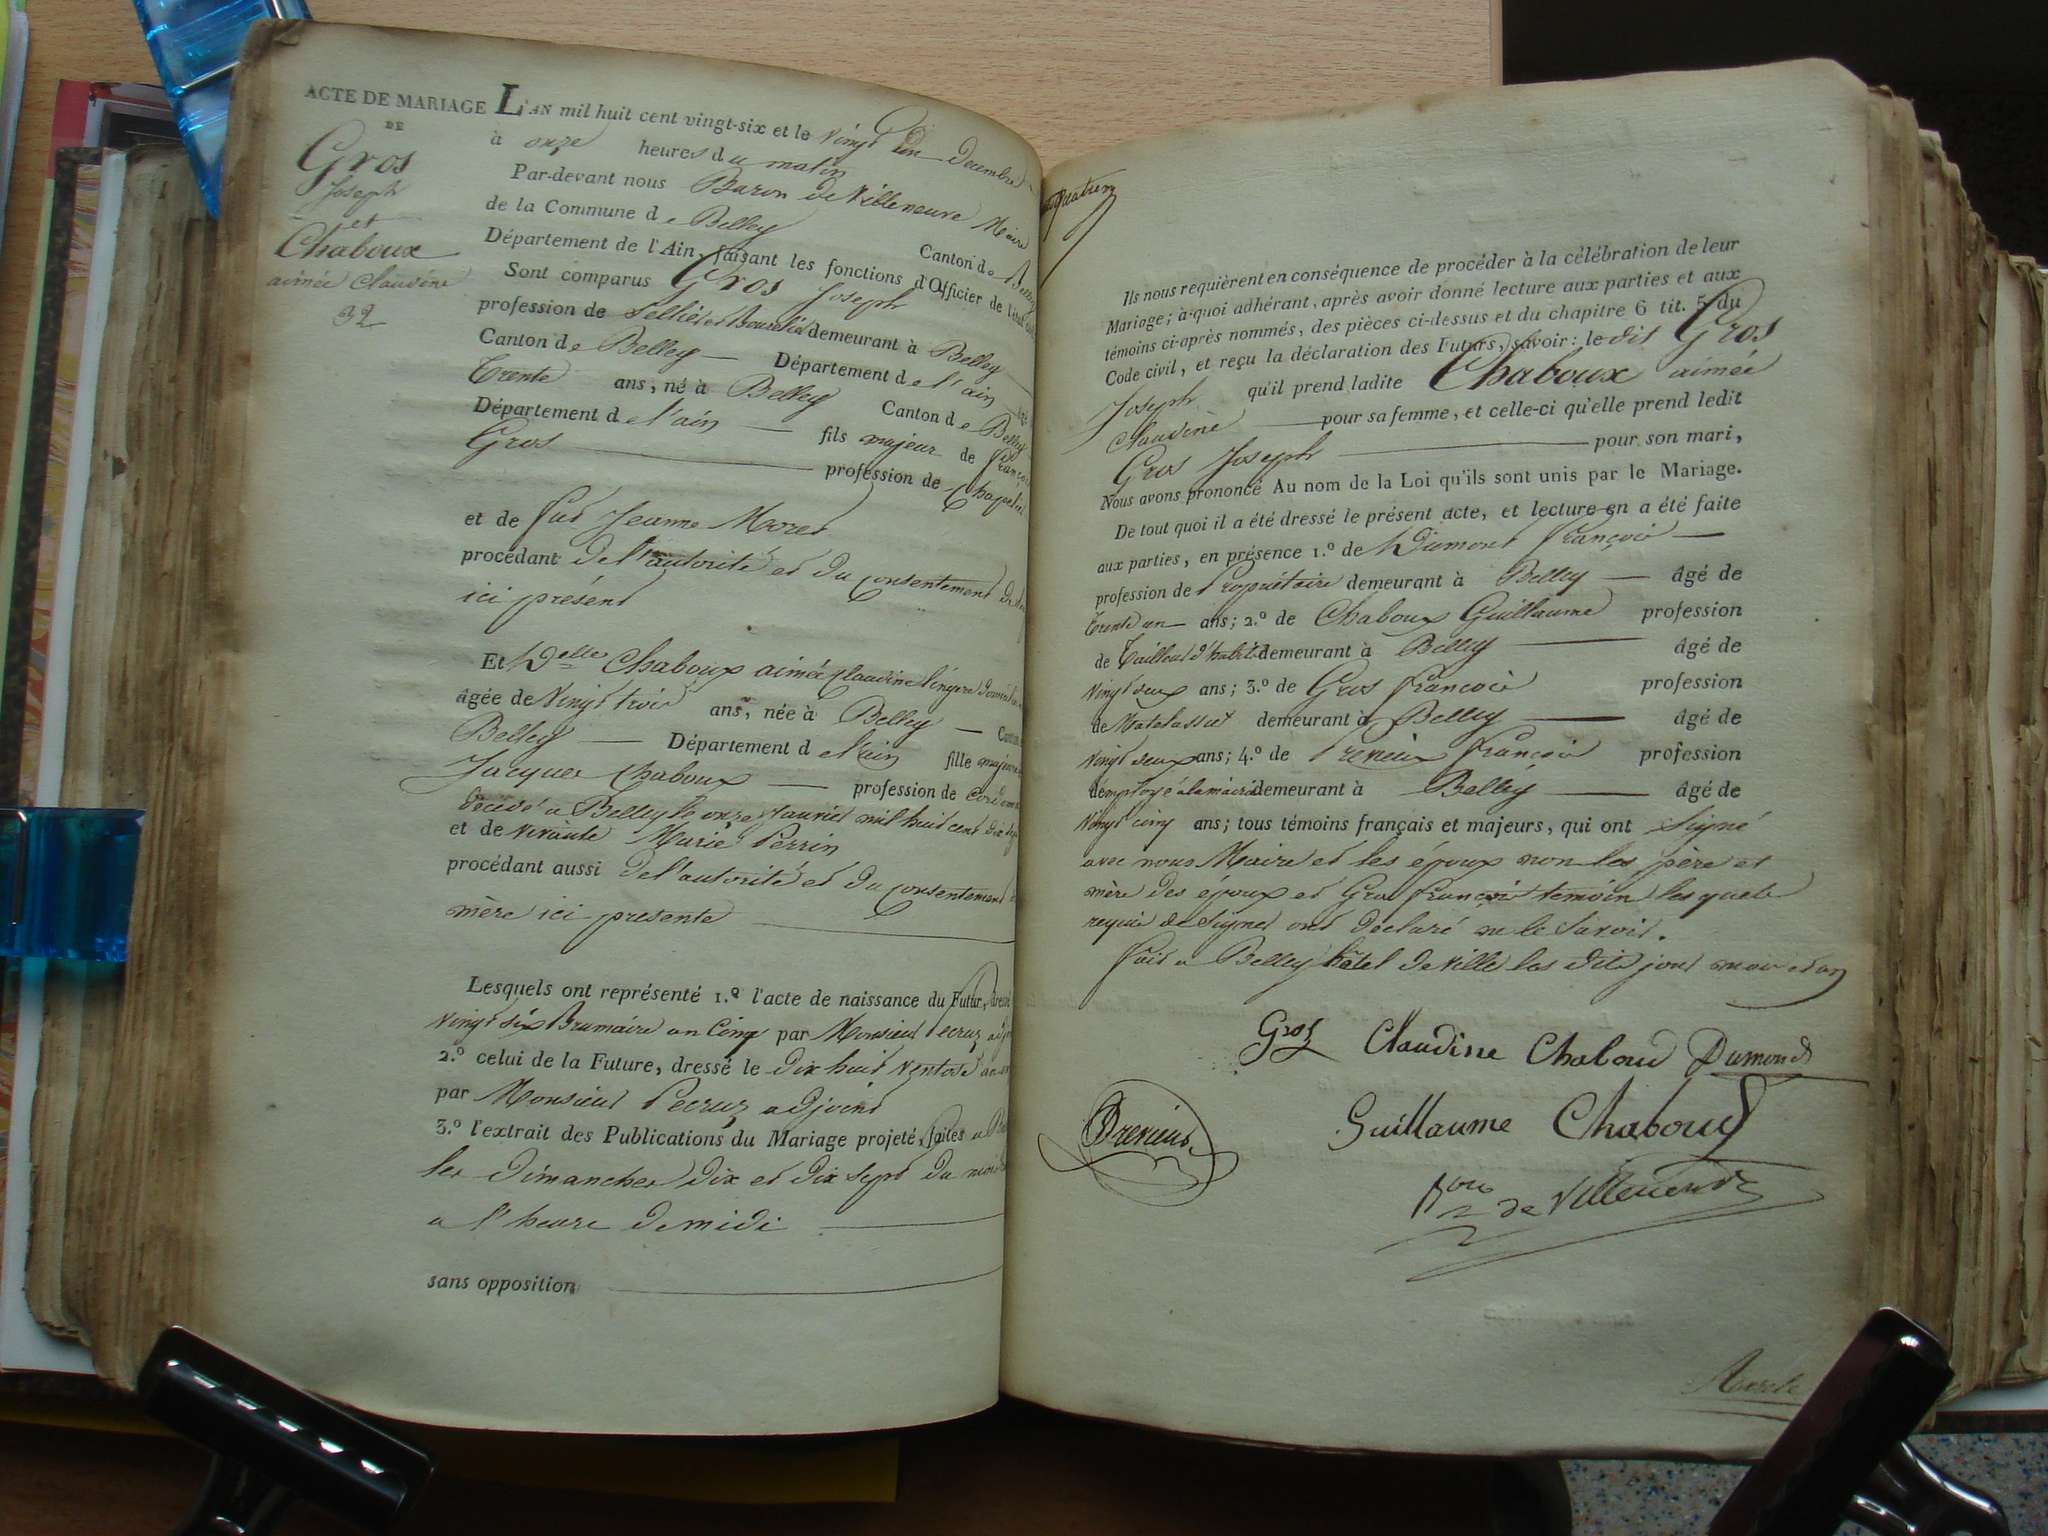 ACTE DE MARIAGE
DE
Gros
Joseph
et
Chaboux
aimée Claudine
32
L'AN mil huit cent vingt-six et le vingt un Decembre
à onze heures du matin
Par-devant nous Baron de Villeneuve Maire
de la Commune de Belley Canton de Belley
Département de l'Ain, faisant les fonctions d'Officier de l'état civil
Sont comparus Gros Joseph
profession de Sellier et Bourelier demeurant à Belley
Canton de Belley — Département de l'ain âgé
Trente ans, né à Belley Canton de Belley
Département de l'ain — fils majeur de françois
Gros — profession de Chapelier
et de fue Jeanne Moret
procédant de l'autorité et du consentement de
ici présent
Et Delle Chaboux aimée Claudine lingere
âgée de Vingt trois ans, née à Belley — Canton
Belley — Département de l'ain fille majeure
Jacques Chaboux — profession de
décédé a Belley le onze mil huit cent dix
et de vivante Marie Perrin
procédant aussi de l'autorité et du consentement
mère ici presente
Lesquels ont représenté 1.º l'acte de naissance du Futur, dressé
Vingt six Brumaire an Cinq par Monsieur Pecruz
2.º celui de la Future, dressé le dix huit Ventose
par Monsieur Pecruz adjoint
3.º l'extrait des Publications du Mariage projeté, faites a
les dimanches dix et dix sept du mois
a l'heure de midi
sans opposition
Ils nous requièrent en conséquence de procéder à la célébration de leur
Mariage; à quoi adhérant, après avoir donné lecture aux parties et aux
témoins ci-après nommés, des pièces ci-dessus et du chapitre 6 tit. 5 du
Code civil, et reçu la déclaration des Futurs, savoir: le dit Gros
Joseph qu'il prend ladite Chaboux aimée
Claudine — pour sa femme, et celle-ci qu'elle prend ledit
Gros Joseph — pour son mari,
Nous avons prononcé Au nom de la Loi qu'ils sont unis par le Mariage.
De tout quoi il a été dressé le présent acte, et lecture en a été faite
aux parties, en présence 1.º de Dumont françois —
profession de Propriétaire demeurant à Belley — âgé de
trente un ans; 2.º de Chaboux Guillaume profession
de Tailleur d'habits demeurant à Belley — âgé de
Vingt deux ans; 3.º de Gros françois profession
de Matelassier demeurant à Belley — âgé de
Vingt deux ans; 4.º de Prenieux françois profession
d'employé à la mairie demeurant à Belley — âgé de
Vingt cinq ans; tous témoins français et majeurs, qui ont Signé
avec nous Maire et les époux non les père et
mère des époux et Gros françois temoin lesquels
requis de Signer ont déclaré ne le Savoir.
fait a Belley hôtel de Ville les dits jour mois et an
Gros Claudine Chaboud Dumond
Guillaume Chaboud
Bon de Villeneuve